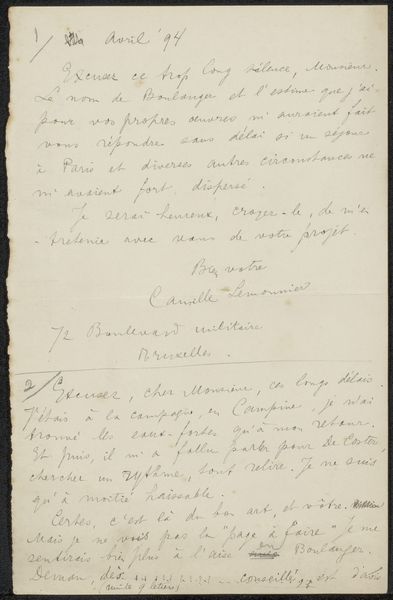 1/ Avril '94
Excusez ce trop long silence, Monsieur.
Le nom de Boulanger et l'estime que j'ai
pour vos propres œuvres m'auraient fait
vous répondre sans délai si un séjour
à Paris et diverses autres circonstances ne
m'avaient fort dispersé.
Je serai heureux, croyez-le, de m'en
-tretenir avec vous de votre projet.
Bien votre
Camille Lemonnier
72 Boulevard militaire
Bruxelles.
2/ Excusez, cher Monsieur, ces longs délais.
J'étais à la campagne, en Campine, je n'ai
trouvé les eaux-fortes qu'à mon retour.
Et puis, il m'a fallu parler pour De Coster,
chercher un rythme, tout relire. Je ne suis
qu'à moitié haïssable.
Certes, c'est là du bon art, et vôtre.
Mais je ne vois pas la "page à faire". Je me
sentirais bien plus à l'aise en Boulanger.
Deman, dès conseillé est d'avis
(suite 9 letters)